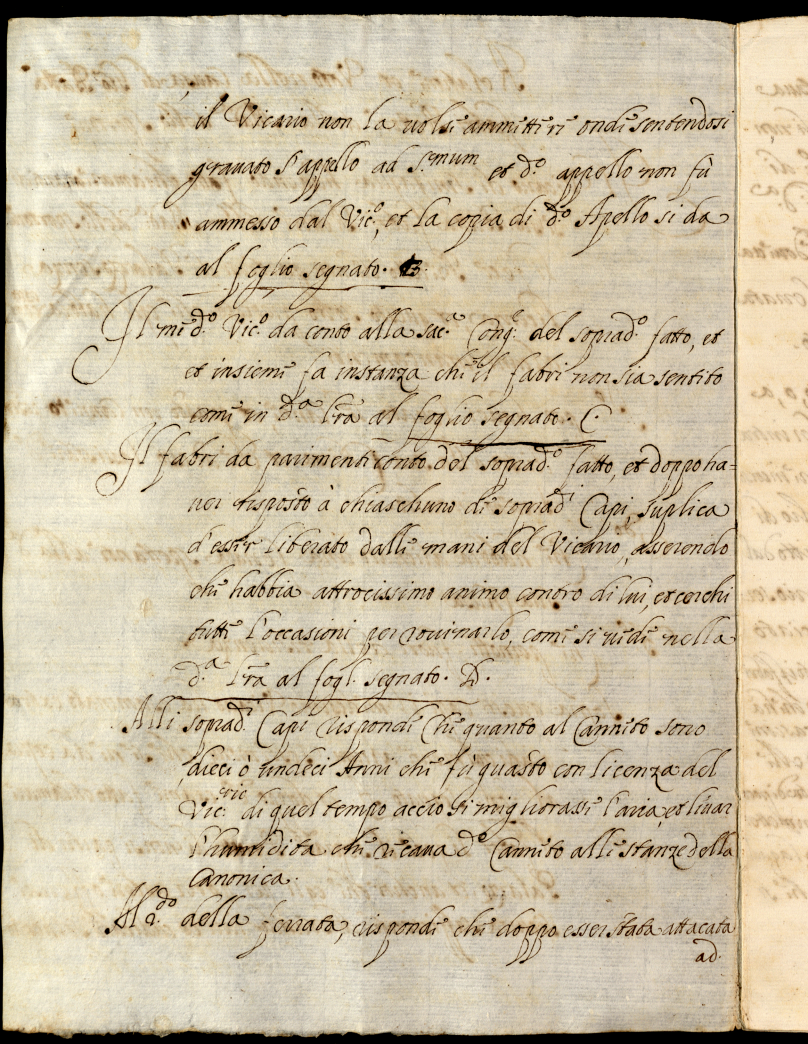 il Vicario non la volse ammettere onde sentendosi
gravato s'appello ad S.mum et d.o appello non fù
ammesso dal Vic.o, et la copia di d.o Apello si da
al foglio segnato. B.
Il med.o Vic.o da conto alla Sac.a Cong.e del soprad.o fatto, et
et insieme fa instanza che il fabri non sia sentito
come in d.a l'ra al foglio segnato. C.
Il fabri da parimenti conto del soprad.o fatto, et doppo ha=
ver risposto à chiaschuno de soprad.i Capi, suplica
d'esser liberato dalle mani del Vicario, asserendo
che habbia attrocissimo animo contro di lui, et cerchi
tutte l'occasioni per rovinarlo, come si vede nella
d.a l'ra al fogl. segnato. D.
Alli soprad.i Capi risponde che quanto al Canneto sono
dieci ò undeci Anni che fù guasto con licenza del
Vic.rio di quel tempo accio si migliorasse l'aria, et levar
l'humidita che recava d.o Canneto alle stanze della
Canonica.
Al 2.do della ferrata, risponde che doppo esser stata attacata
ad.